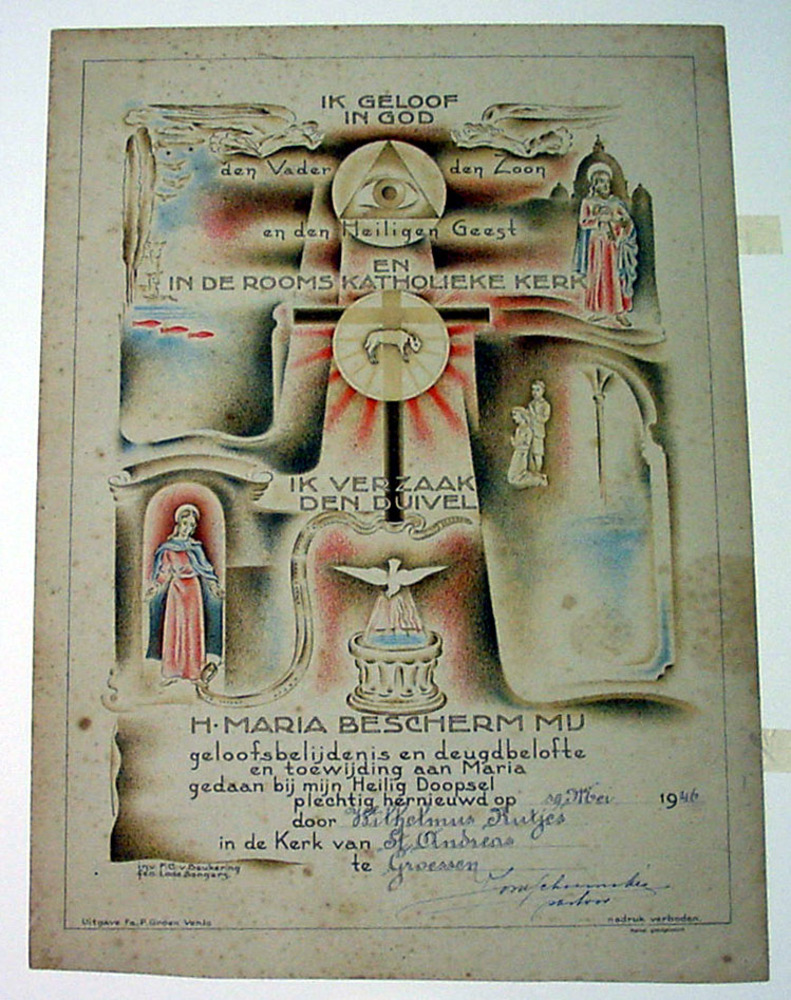 IK GELOOF
IN GOD
den Vader den Zoon
en den Heiligen Geest
EN
IN DE ROOMS KATHOLIEKE KERK
IK VERZAAK
DEN DUIVEL
H. MARIA BESCHERM MIJ
geloofsbelijdenis en deugdbelofte
en toewijding aan Maria
gedaan bij mijn Heilig Doopsel
plechtig hernieuwd op Mei 1946
door Wilhelmus Rutjes
in de Kerk van St. Andreas
te Groessen
pastoor
inv. P.G. v. Beukering
fec. Lode Sengers
Uitgave Fa. P. Groen Venlo
nadruk verboden.